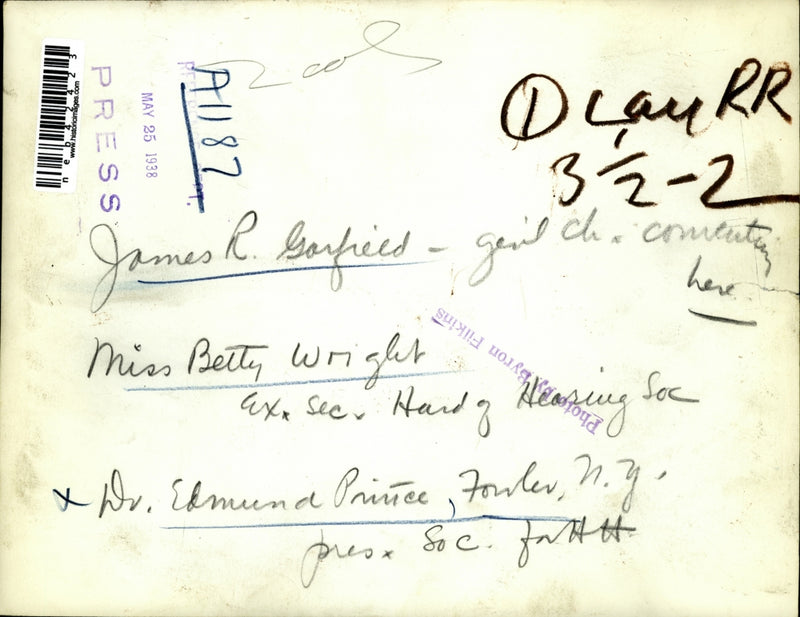 neb42423
www.historicimages.com
PRESS
MAY 25 1938
A1187
① Lay RR
3 1/2 - 2
James R. Garfield - genl ch. convention
here
Miss Betty Wright
Ex. Sec. Hard of Hearing Soc
Photo by Byron Filkins
x Dr. Edmund Prince, Fowler, N.Y.
pres. Soc. for HH